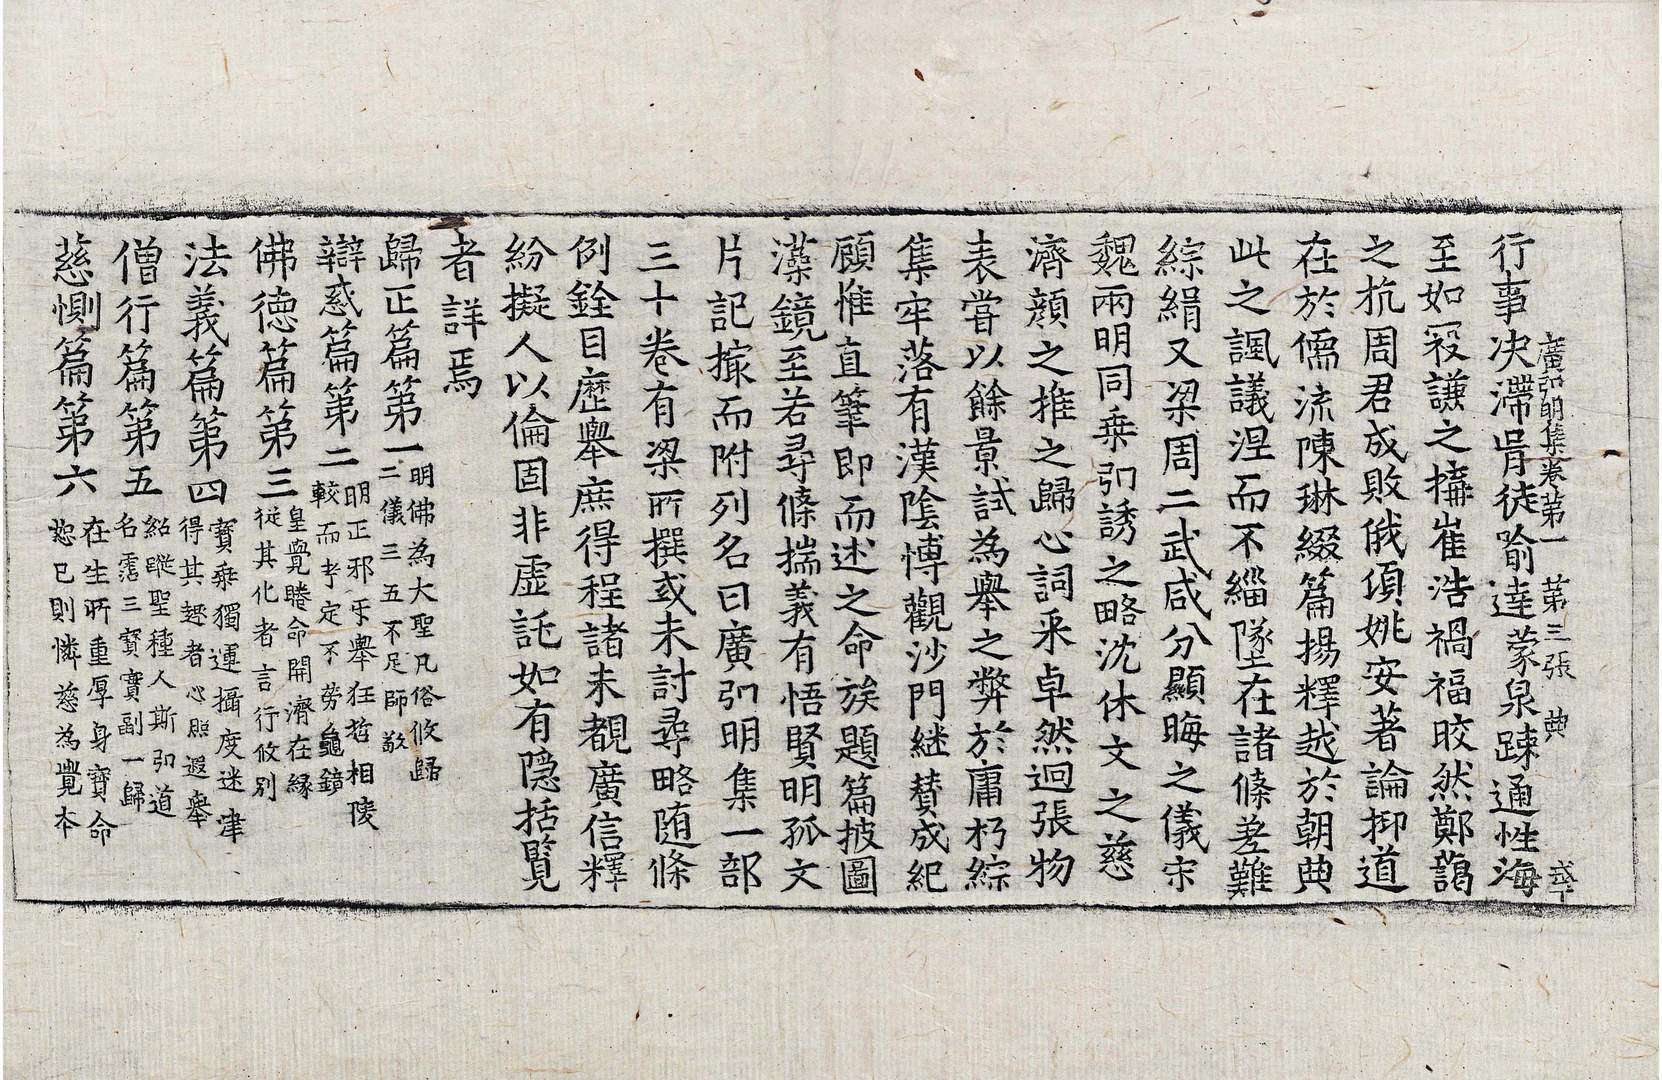 廣弘明集卷第一 第三張 典
行事决滯胥徒喻達蒙泉踈通性海
至如寇謙之搆崔浩禍福皎然鄭藹
之抗周君成敗俄頃姚安著論抑道
在於儒流陳琳綴篇揚釋越於朝典
此之諷議涅而不緇墜在諸條差難
綜緝又梁周二武咸分顯晦之儀宋
魏兩明同乗弘誘之略沈休文之慈
濟顔之推之歸心詞采卓然迥張物
表嘗以餘景試為舉之弊於庸朽綜
集牢落有漢陰愽觀沙門継賛成紀
顧惟直筆即而述之命族題篇披圖
藻鏡至若尋條揣義有悟賢明孤文
片記撮而附列名曰廣弘明集一部
三十卷有梁所撰或未討尋略随條
例銓目歷舉庶得程諸未覩廣信釋
紛擬人以倫固非虛託如有隠括覧
者詳焉
歸正篇第一 明佛為大聖凡俗攸歸二儀三五不足師敬
辯惑篇第二 明正邪牙舉狂哲相陵較而考定不勞龜鏡
佛徳篇第三 皇覺睠命開濟在縁從其化者言行攸別
法義篇第四 寶乗獨運攝度迷津得其趣者心照遐舉
僧行篇第五 紹蹤聖種人斯弘道名霑三寶實副一歸
慈惻篇第六 在生所重厚身寶命恕已則憐慈為覺本